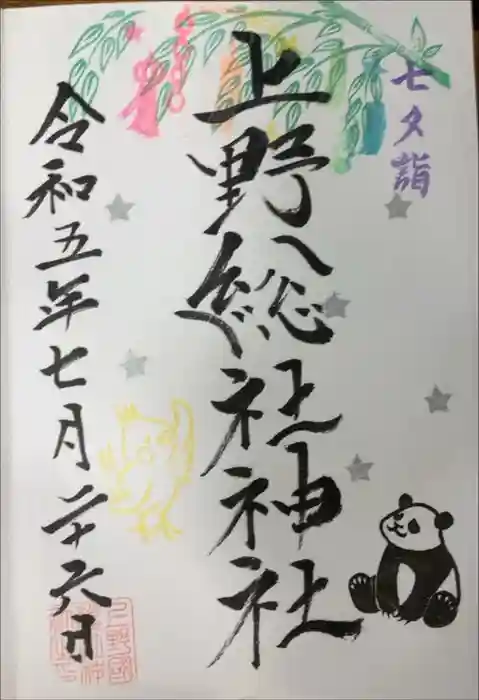 七夕詣
上野總社神社
令和五年七月二十六日